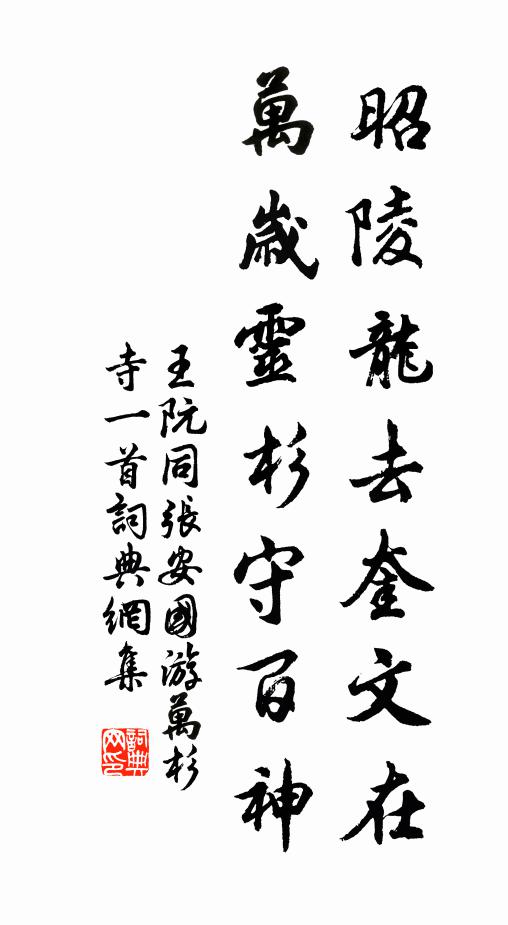 昭陵龍去奎文在
萬歲靈杉守百神
王阮同張安國游萬杉
寺一首詞典網集
詞典
网印